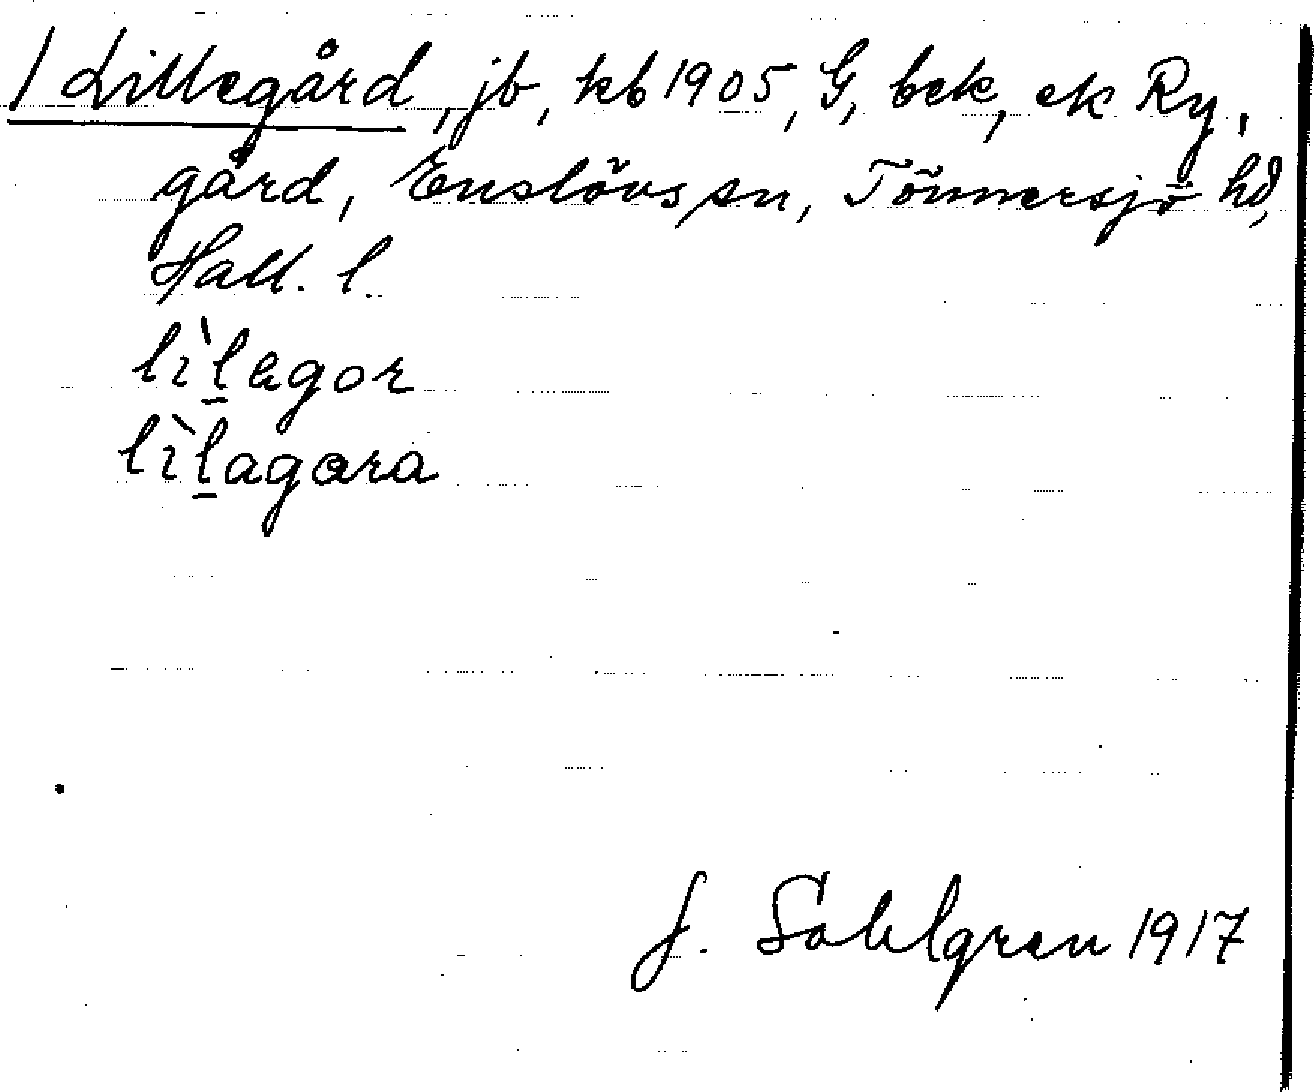 / Lillegård, jb, kb 1905, G, bek, ek Ry,
gård, Enslövs sn, Tönnersjö hd,
Hall. l.
lìlagor
lìlagara
J. Sahlgren 1917